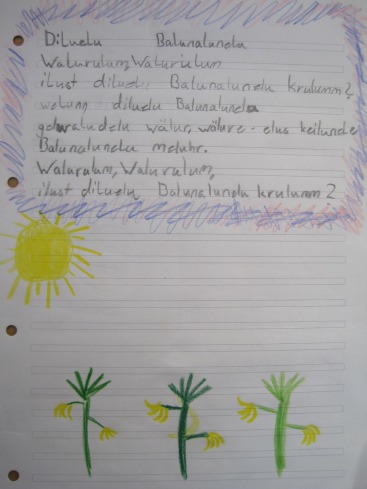 Diludu Balunalundu
Walurulum, Walurulum
ilust diludu Balunalundu krulumm?
welunn diludu Balunalundu
geluraludelu wälur, wälure. elus keilunelu
Balunalundu meluhr.
Walurulum, Walurulum,
ilust diludu Balunalundu krulumm?